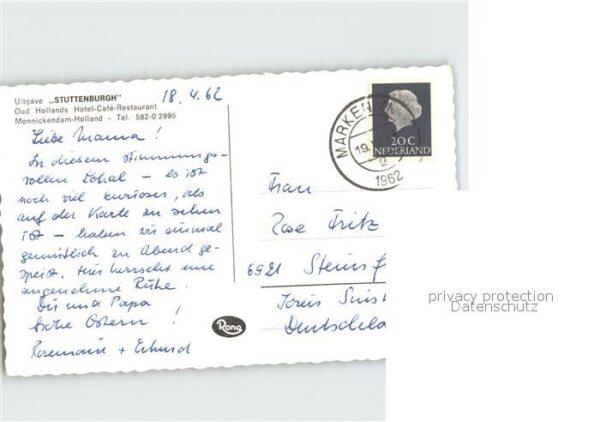 Uitgave „STUTTENBURGH"
Oud Hollands Hotel-Café-Restaurant
Monnickendam-Holland - Tel. 582-0 2995
18.4.62
Liebe Mama!
In diesem stimmungs-
vollen Lokal – es ist
noch viel kurioser, als
auf der Karte zu sehen
ist – haben wir einmal
gemütlich zu Abend ge-
speist. Hier herrscht eine
angenehme Ruhe.
Dir und Papa
frohe Ostern!
Rosemarie + Erhard
MARKEN
19
1962
20C
NEDERLAND
Frau
Rose Fritz
6921
Kreis Sins
Deutschla
Rong
privacy protection
Datenschutz